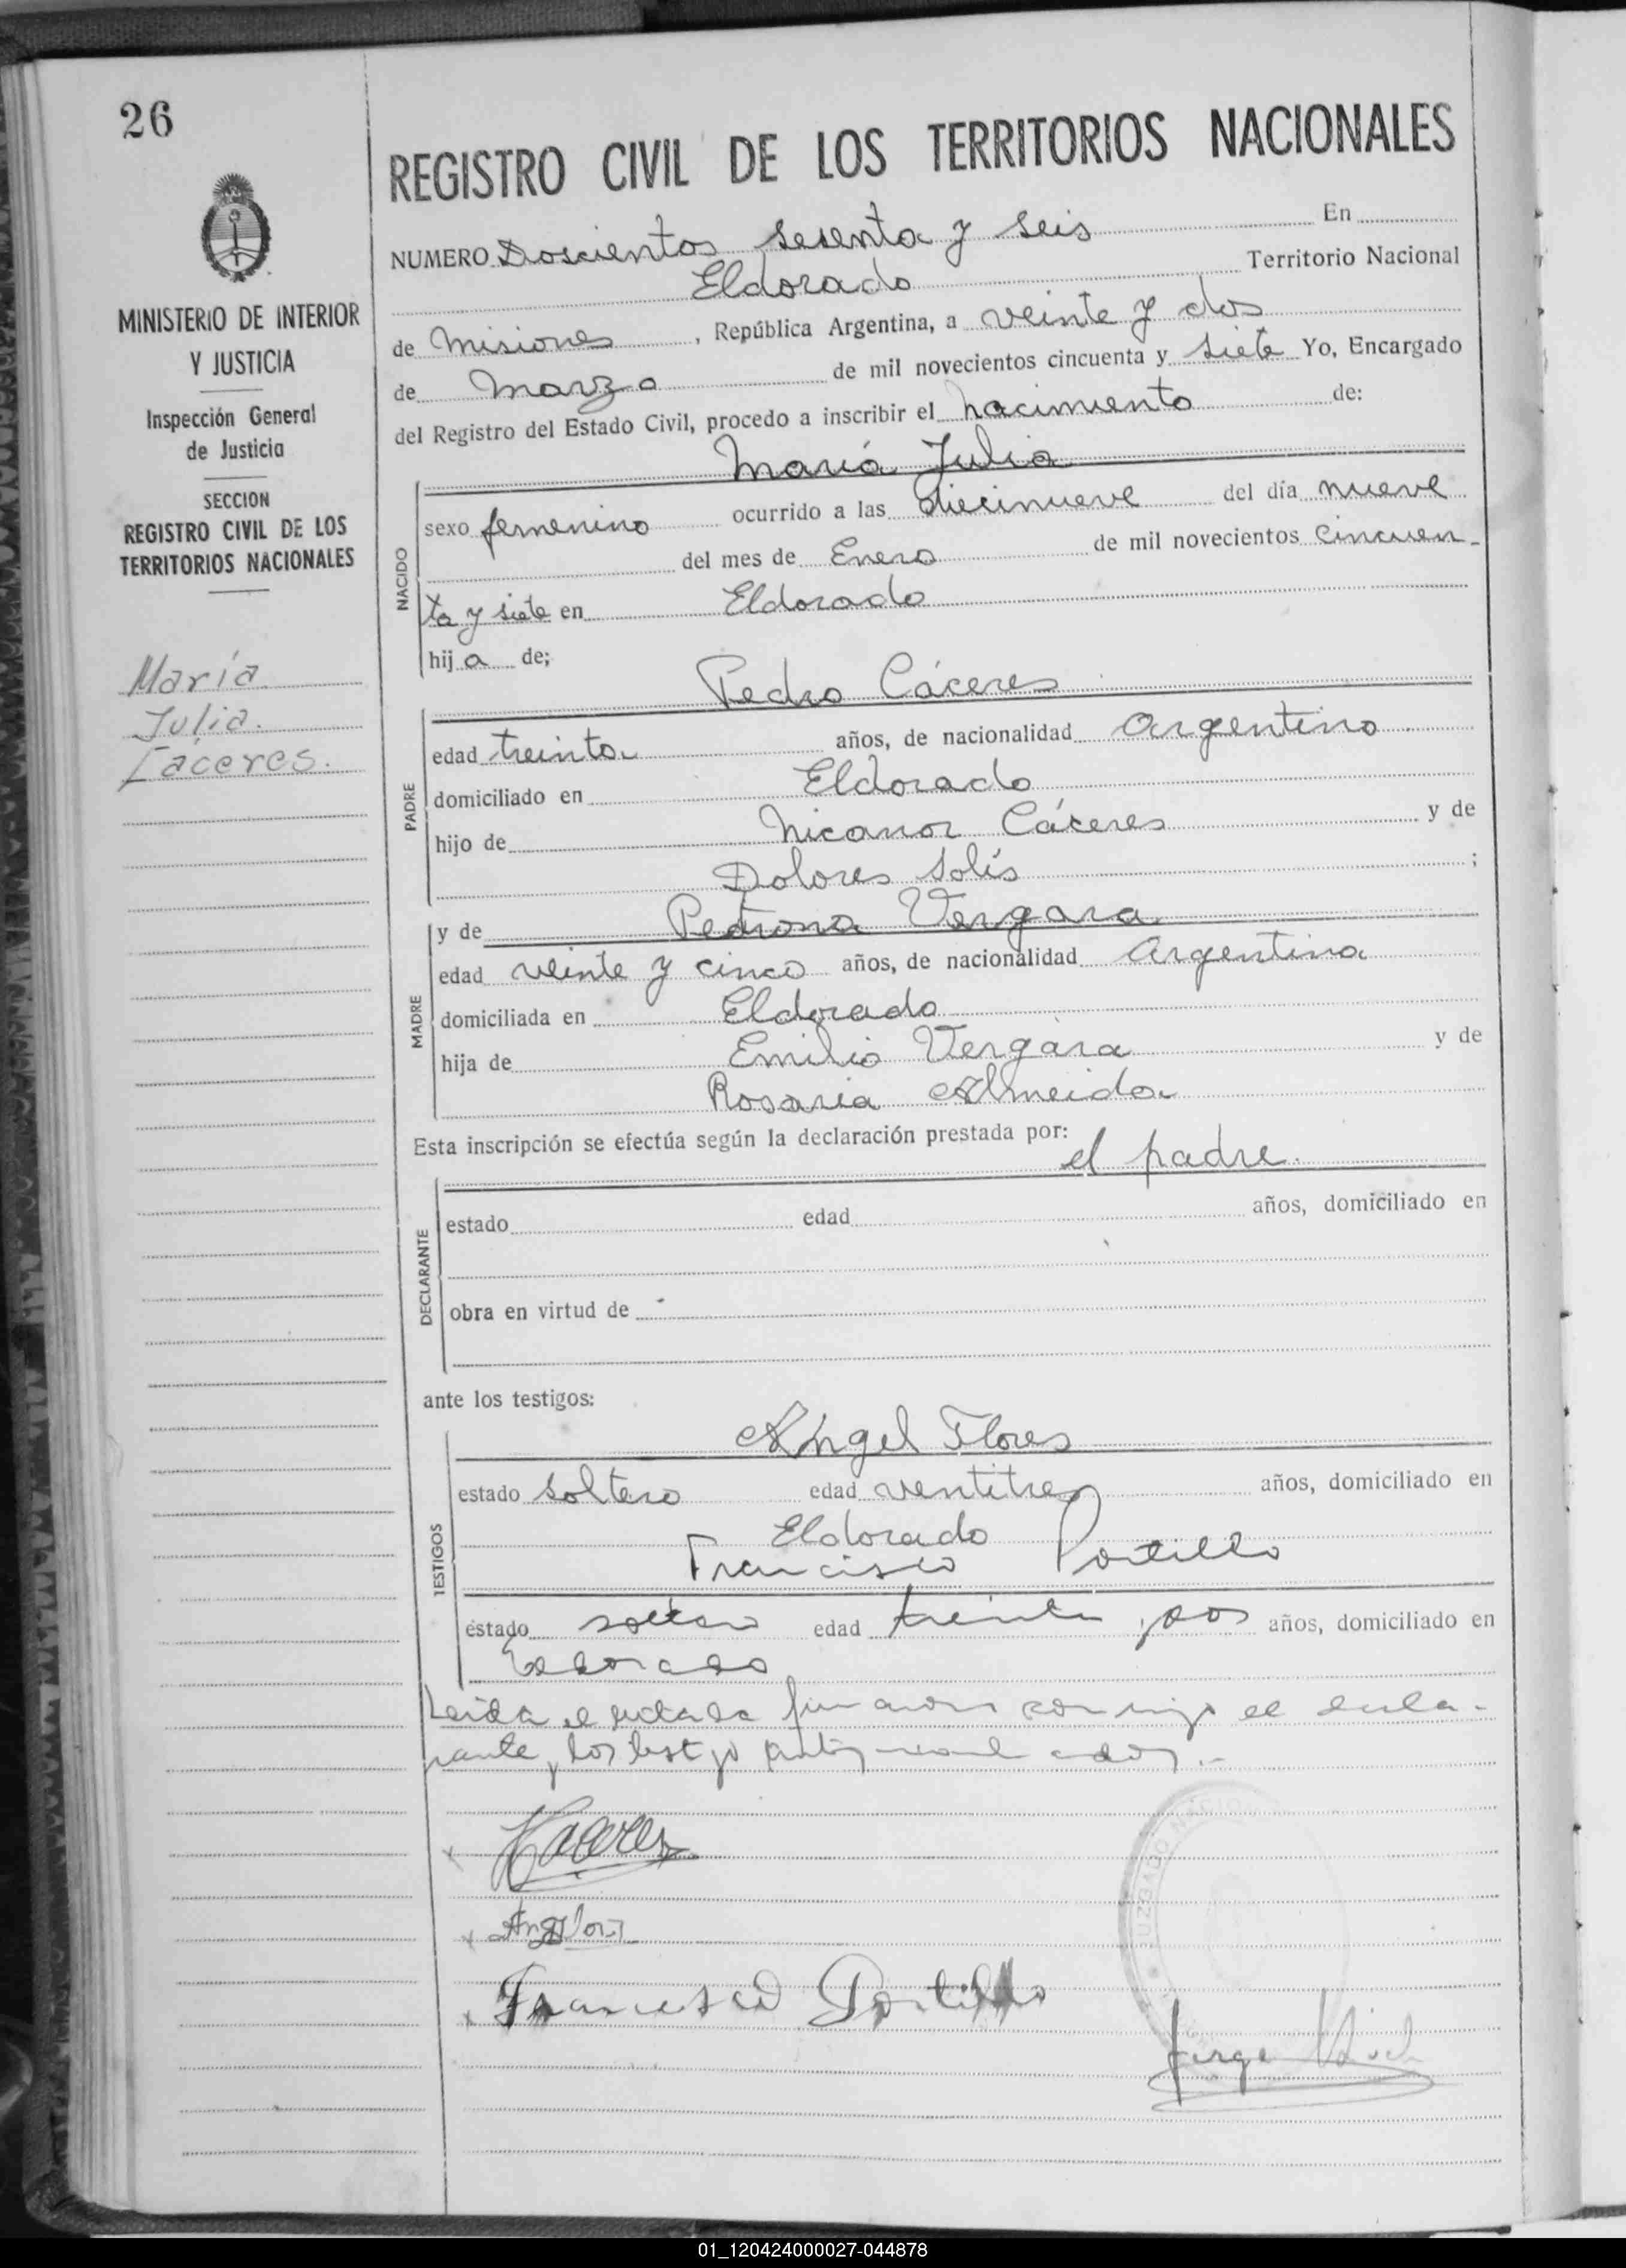 26
MINISTERIO DE INTERIOR
Y JUSTICIA
Inspección General
de Justicia
SECCION
REGISTRO CIVIL DE LOS
TERRITORIOS NACIONALES
María
Julia.
Cáceres.
REGISTRO CIVIL DE LOS TERRITORIOS NACIONALES
NUMERO Doscientos sesenta y seis En
Eldorado Territorio Nacional
de Misiones, República Argentina, a veinte y dos
de Marzo de mil novecientos cincuenta y siete Yo, Encargado
del Registro del Estado Civil, procedo a inscribir el nacimiento de:
María Julia
NACIDO
sexo femenino ocurrido a las diecinueve del día nueve
del mes de Enero de mil novecientos cincuen-
ta y siete en Eldorado
hija de;
Pedro Cáceres
PADRE
edad treinta años, de nacionalidad Argentino
domiciliado en Eldorado
hijo de Nicanor Cáceres y de
Dolores Solís ;
MADRE
y de Petrona Vergara
edad veinte y cinco años, de nacionalidad Argentina
domiciliada en Eldorado
hija de Emilio Vergara y de
Rosaria Almeida
Esta inscripción se efectúa según la declaración prestada por:
el padre.
DECLARANTE
estado edad años, domiciliado en
obra en virtud de -
ante los testigos:
Angel Flores
TESTIGOS
estado soltero edad ventitres años, domiciliado en
Eldorado
Francisco Portillo
estado soltero edad treinta y dos años, domiciliado en
Eldorado
Leida el acta la firmaron conmigo el decla-
rante y los testigos
Caceres
Francisco Portillo
JUZGADO NACIO
Jorge
01_120424000027-044878